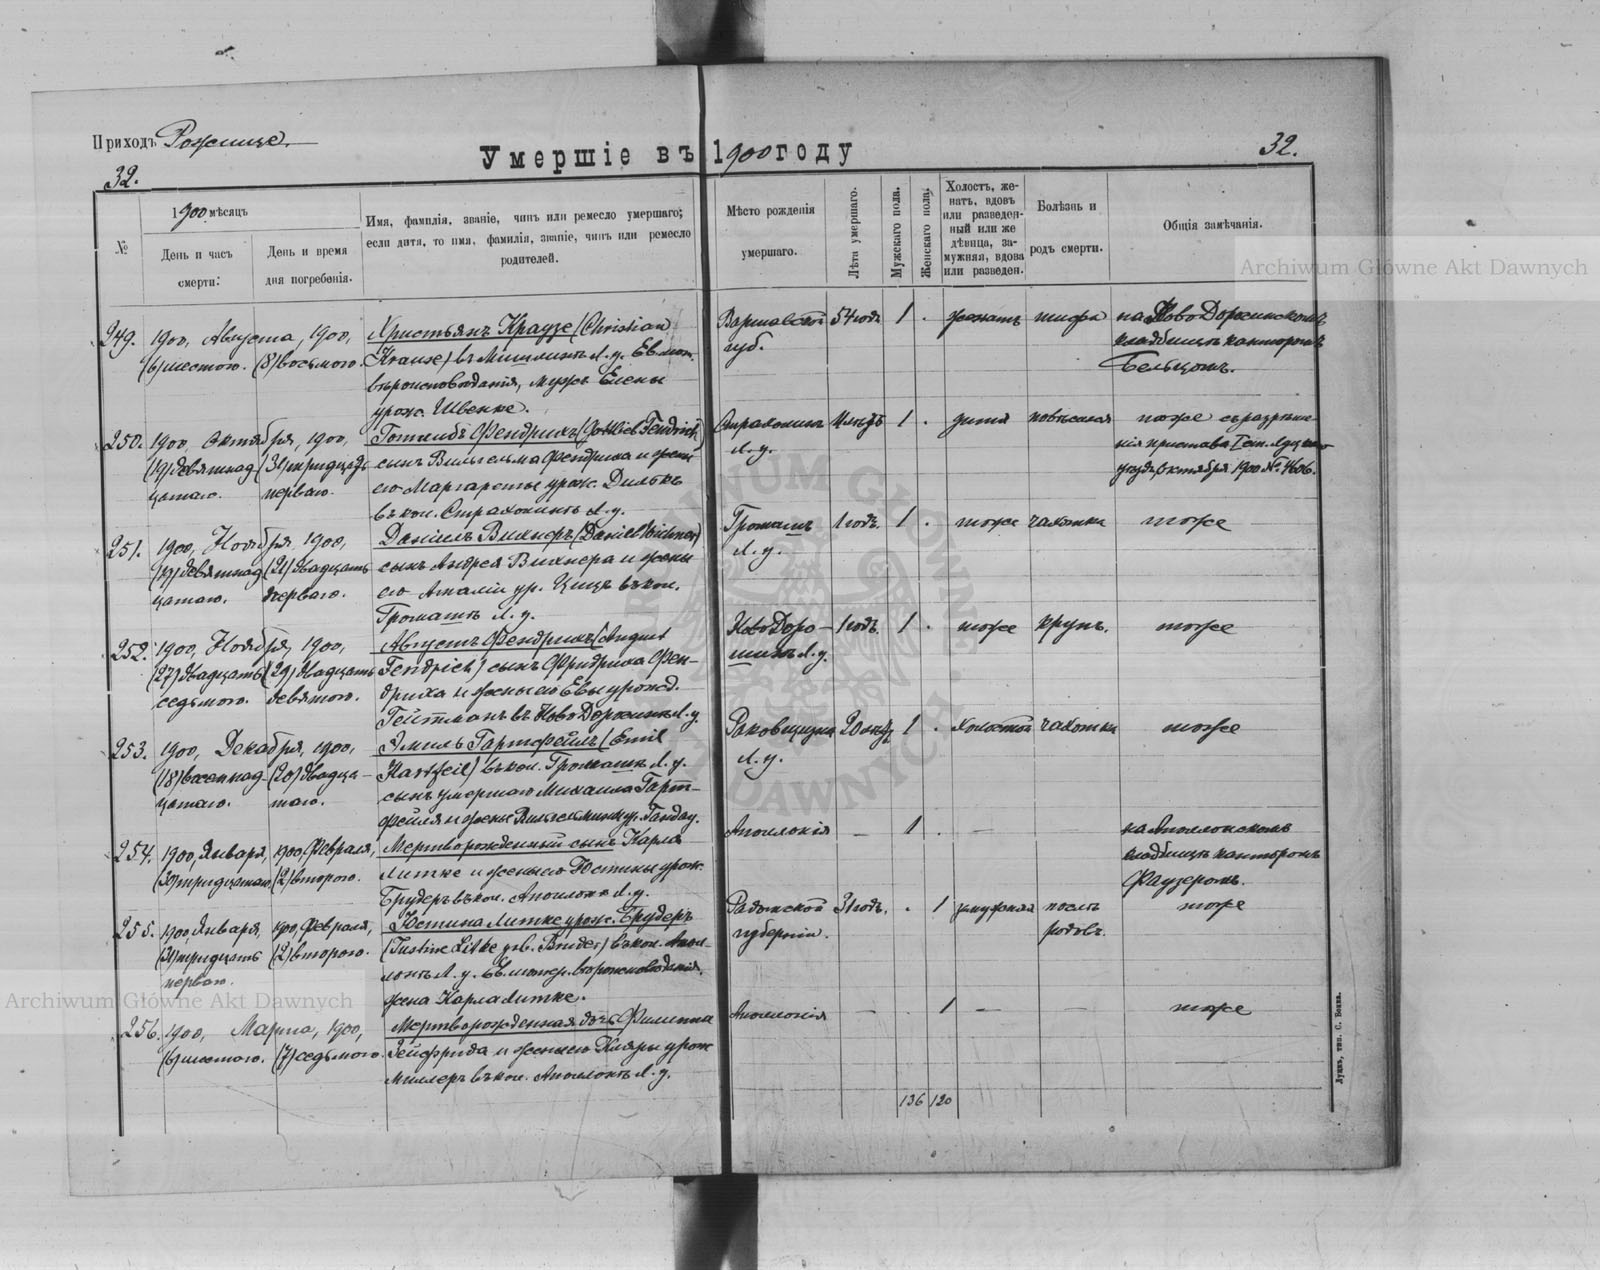 Приходъ Рожище.
Умершіе въ 1900 году
32.
32.
№
1900 мѣсяцъ
День и часъ
смерти:
День и время
дня погребенія.
Имя, фамилія, званіе, чинъ или ремесло умершаго;
если дитя, то имя, фамилія, званіе, чинъ или ремесло
родителей.
Мѣсто рожденія
умершаго.
Лѣта умершаго.
Мужскаго пола.
Женскаго пола.
Холостъ, же-
натъ, вдовъ
или разведен-
ный или же
дѣвица, за-
мужняя, вдова
или разведен.
Болѣзнь и
родъ смерти.
Общія замѣчанія.
249.
1900, Августа, 1900,
(6) шестого. (8) восьмого.
Христьянъ Краузе (Christian
Krause) въ Л. у. Ев. лют.
вѣроисповѣданія, мужъ Елены
урож. Швенке.
Варшавской
губ.
54 годъ
1
.
женатъ
тифа
на Ново Дорожинскомъ
кладбищѣ канторомъ
Бельцомъ.
250.
1900 Октября, 1900,
(19) девятнад (31) тридцать
цатаго. перваго.
Готлибъ Фендрихъ (Gottlieb Fendrich)
сынъ Вильгельма Фендриха и жены
его Маргареты урож. Дильке
въ кол. Страхолинѣ Л. у.
Страхолинъ
Л. у.
1
.
дитя
тоже съ разрѣше
нія пристава I стн. Луцкаго
уѣзда, Октября 1900 № 4606.
251.
1900, Ноября, 1900,
(19) девятнад (21) двадцать
цатаго. перваго.
Даніилъ Вихнеръ (Daniel Wichner)
сынъ Андрея Вихнера и жены
его Аталіи ур. Цице въ кол.
Громашъ Л. у.
Громашъ
Л. у.
1 годъ.
1
.
тоже
чахотки
тоже
252.
1900, Ноября, 1900,
(27) двадцать (29) двадцать
седьмого. девятого.
Августъ Фендрихъ (August
Fendrich) сынъ Фридриха Фен-
дриха и жены его Евы урожд.
Гейтманъ въ Ново Дорожинѣ Л. у.
Ново Доро-
шинъ Л. у.
1 годъ.
1
.
тоже
крупъ.
тоже
253.
1900, Декабря, 1900,
(18) восемнад (20) двадца-
цатаго. таго.
Эмиль Гартфейль (Emil
Hartfeil) въ кол. Громашъ Л. у.
сынъ умершаго Михаила Гарт-
фейля и жены Вильгельмины ур. Гандау.
Раковщизна
Л. у.
20
1
.
холостой
чахотки
тоже
254.
1900, Января, 1900, Февраля,
(30) тридцатаго (2) второго.
Мертворожденный сынъ Карла
Литке и жены его Юстины урож.
Брудеръ въ кол. Аполоніи Л. у.
Аполонія
—
1
.
—
на Аполонскомъ
кладбищѣ канторомъ
Фаузеромъ.
255.
1900, Января, 1900, Февраля,
(31) тридцать (2) второго.
перваго.
Юстина Литке урож. Брудеръ
(Justine Litke geb. Bruder) въ кол. Апол-
лонѣ Л. у. Ев. лютер. вѣроисповѣданія.
жена Карла Литке.
Радомской
губерніи.
31 годъ.
.
1
замужняя
послѣ
родовъ.
тоже
256.
1900, Марта, 1900,
(6) шестого. (7) седьмого.
Мертворожденная дочь Филиппа
Зейфрида и жены его Клары урож
Миллеръ въ кол. Аполонѣ Л. у.
Аполонія
—
.
1
—
—
тоже
136
120
Луцкъ, тип. С. Бокса.
Archiwum Główne Akt Dawnych
Archiwum Główne Akt Dawnych
ARCHIWUM GŁÓWNE AKT DAWNYCH